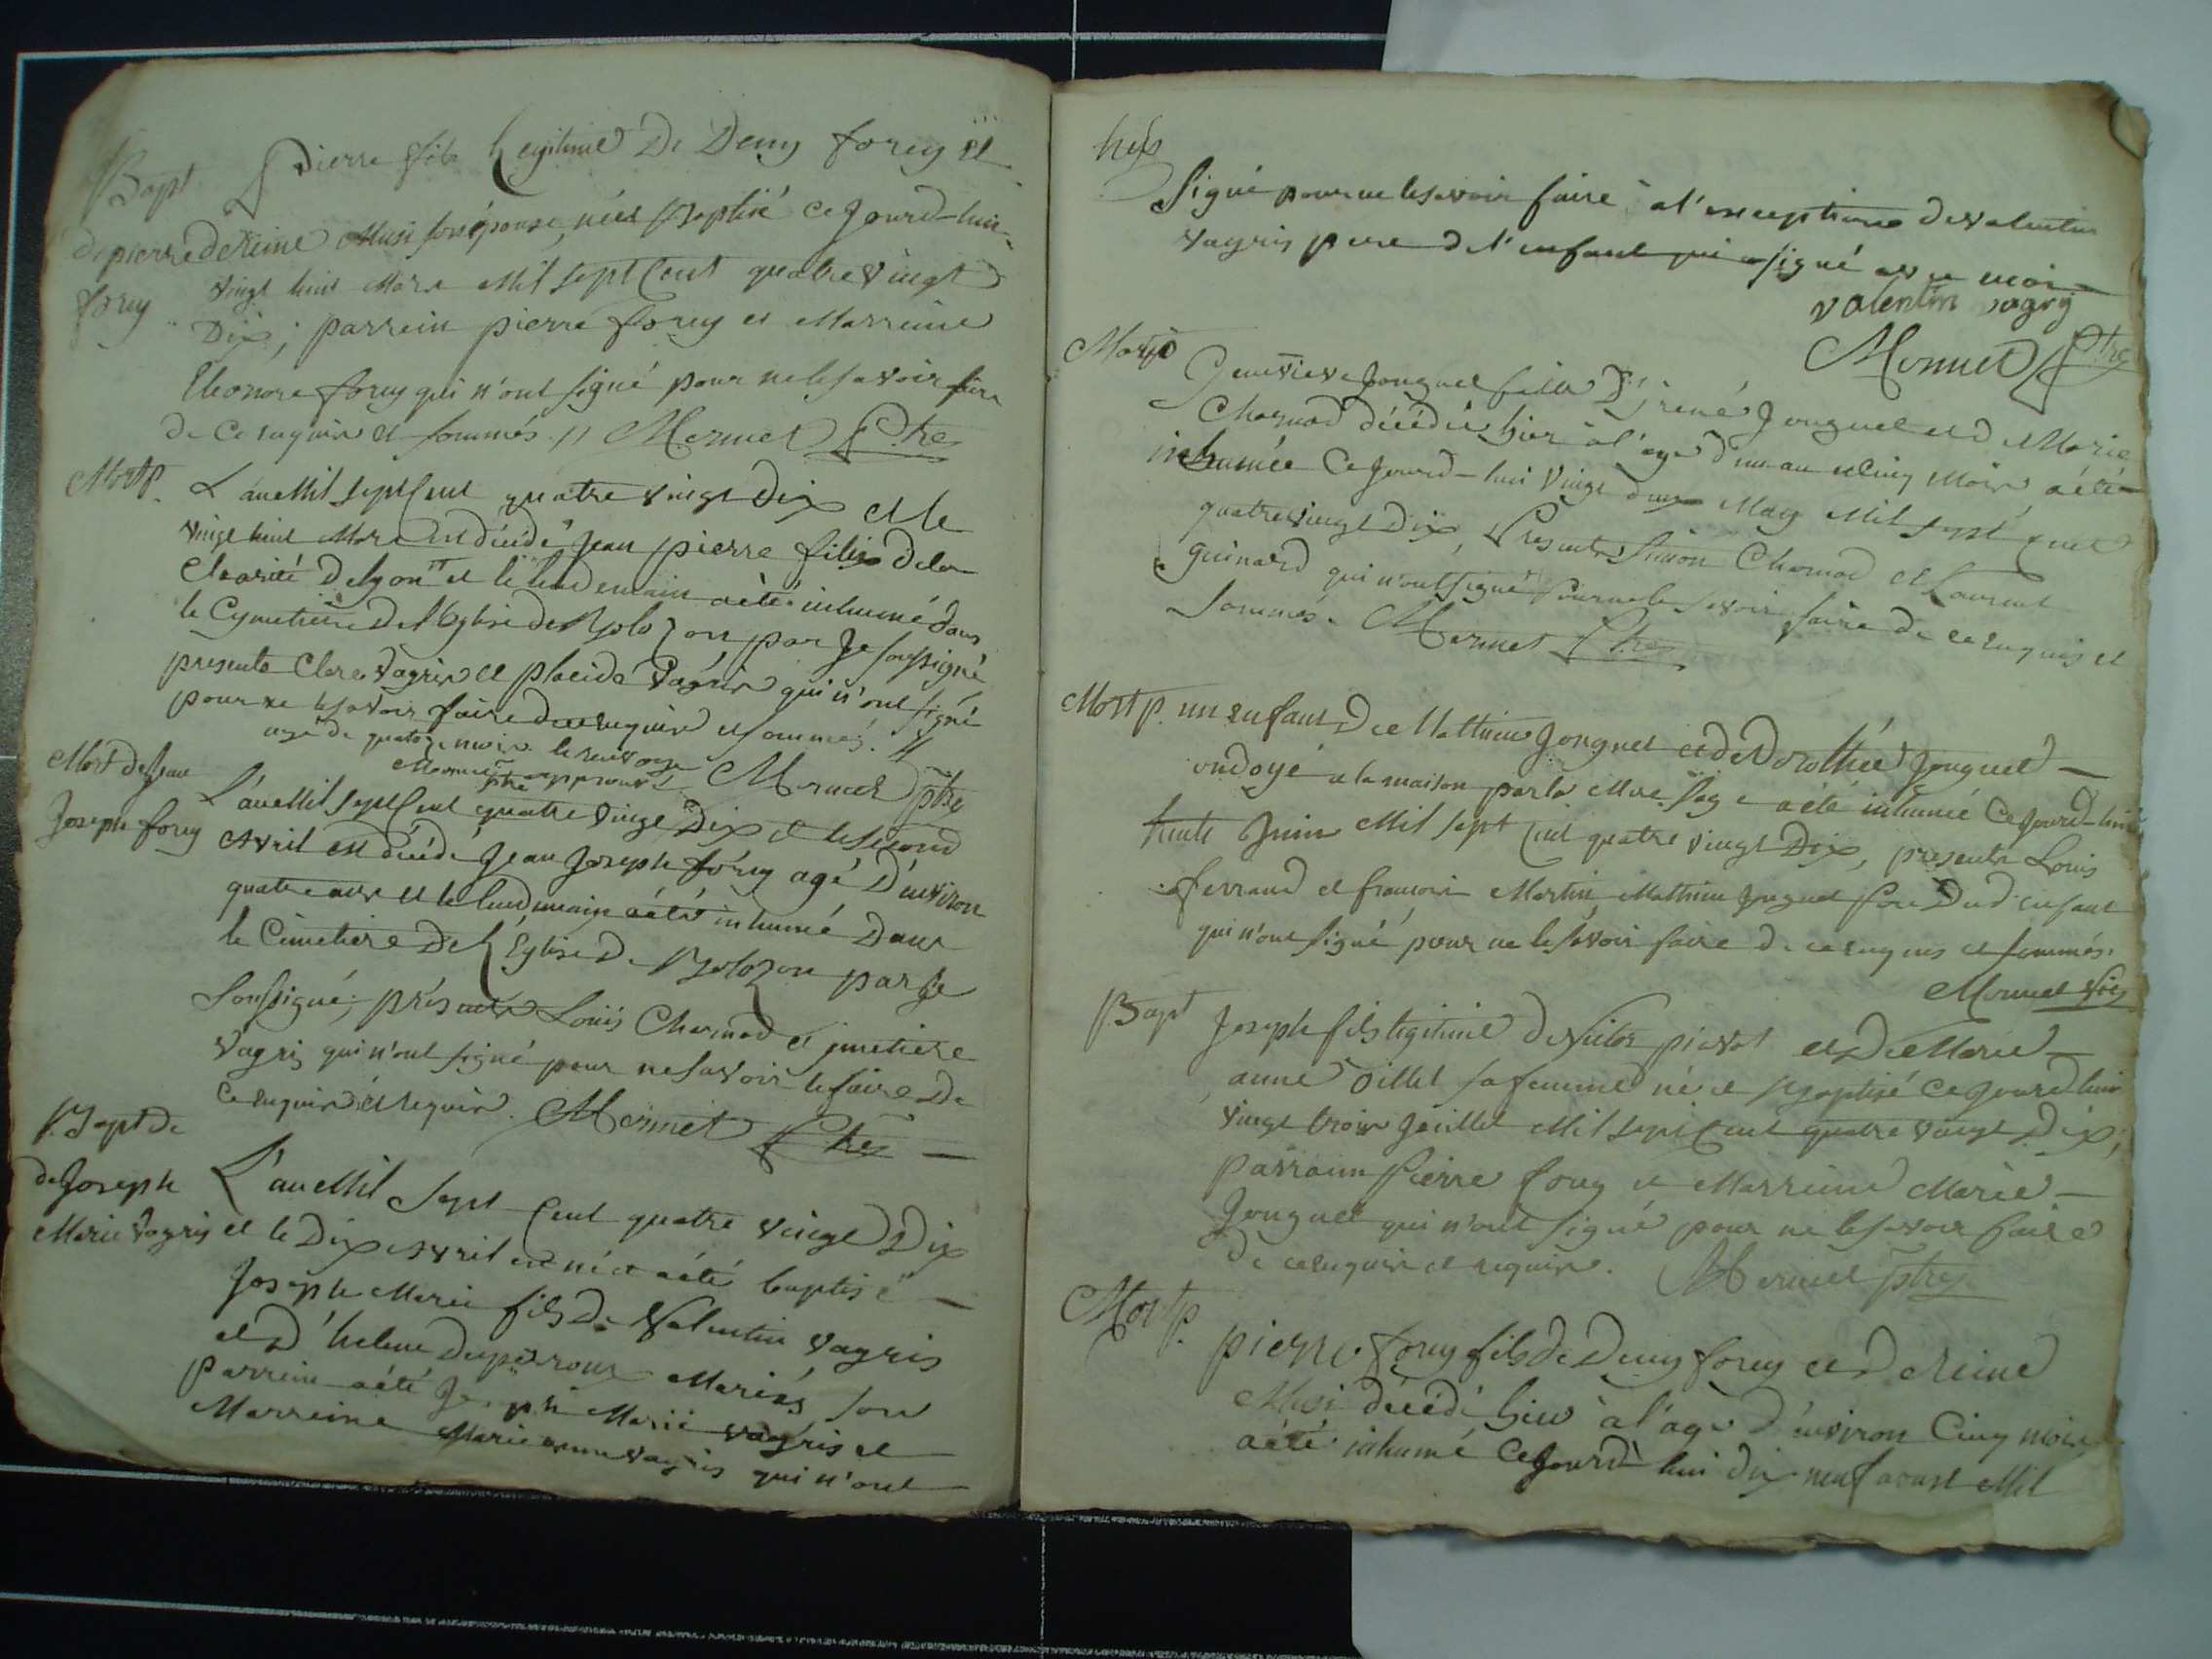 Bapt
de pierre
forey
Pierre fils Legitime De Deny forey et
de Reine Musi son épouse, né et Baptisé ce Jourd-hui
vingt huit Mars Mil sept Cent quatre vingt
Dix; parrein pierre forey et Marreine
Eleonore forey qui n'ont signé pour ne le savoir faire
de ce enquis et sommés. // Mermet Ptre
Mort p.
L'an Mil sept Cent quatre vingt dix et le
vingt huit Mars est décédé Jean pierre filis de la
Charité de Lyon et le lendemain a été inhumé dans
le Cymetiere de l'Eglise de Bolozon par Je soussigné
presents Clare Vagris et placide Vagris qui n'ont signé
pour ne le savoir faire de ce enquis et sommés. //
agé de quatorze mois le renvoy
approuvé Mermet ptre
Mermet ptre
Mort de Jean
Joseph forey
L'an Mil sept Cent quatre vingt Dix et le second
Avril est décédé Jean Joseph forey agé D'environ
quatre ans et le lendemain a été inhumé Dans
le Cimetiere De L'Eglise De Bolozon par Je
soussigné; présents Louis Charnod et
Vagris qui n'ont signé pour ne savoir le faire De
ce enquis et requis. Mermet Ptre
Bapt de
de Joseph
Marie Vagris
L'an Mil Sept Cent quatre vingt Dix
et le Dix Avril est né et a été baptisé
Joseph Marie fils De Valentin Vagris
et D'helene Duperroux Mariés, son
parrein a été Joseph Marie Vagris et
Marreine Marie anne Vagris qui n'ont
Signé pour ne le savoir faire à l'exceptione de valentin
vagris pere de l'enfant qui a signé avec moi
valentin vagrÿ
Mermet Ptre
Mort p
Genevieve Jonguet fille D' rené Jonguet et de Marie
Charnod décédée hier à l'age d'un an et Cinq Mois, a été
inhumée Ce Jourd-hui Vingt deux May Mil sept Cent
quatre vingt Dix, Presents Simon Charnod et Laurent
Guinard qui n'ont signé Pour ne le savoir faire de ce enquis et
sommés. Mermet Ptre
Mort p.
un enfant De Mathieu Jonguet et de Dorothée Jonguet
ondoyé a la maison par la Mere sage a été inhumé Ce Jourd-hui
trente Juin Mil sept Cent quatre vingt Dix, presents Louis
ferrand et francois Martin Mathieu Jonguet Pere Dud enfant
qui n'ont signé pour ne le savoir faire de ce enquis et sommés.
Mermet
Bapt
Joseph fils legitime de Victor pievot et De Marie
anne oillet sa femme né et Baptisé ce Jourd hui
vingt trois Jeuillet Mil sept Cent quatre vingt Dix;
parrain Pierre forey et Marreine Marie
Jonguet qui n'ont signé pour ne le savoir faire
de ce enquis et requis. Mermet Ptre
Mort p.
pierre forey fils de Deny forey et de Reine
Musi décédé hier à l'age D'environ Cinq mois
a été inhumé Ce Jourd-hui dix neuf aoust Mil